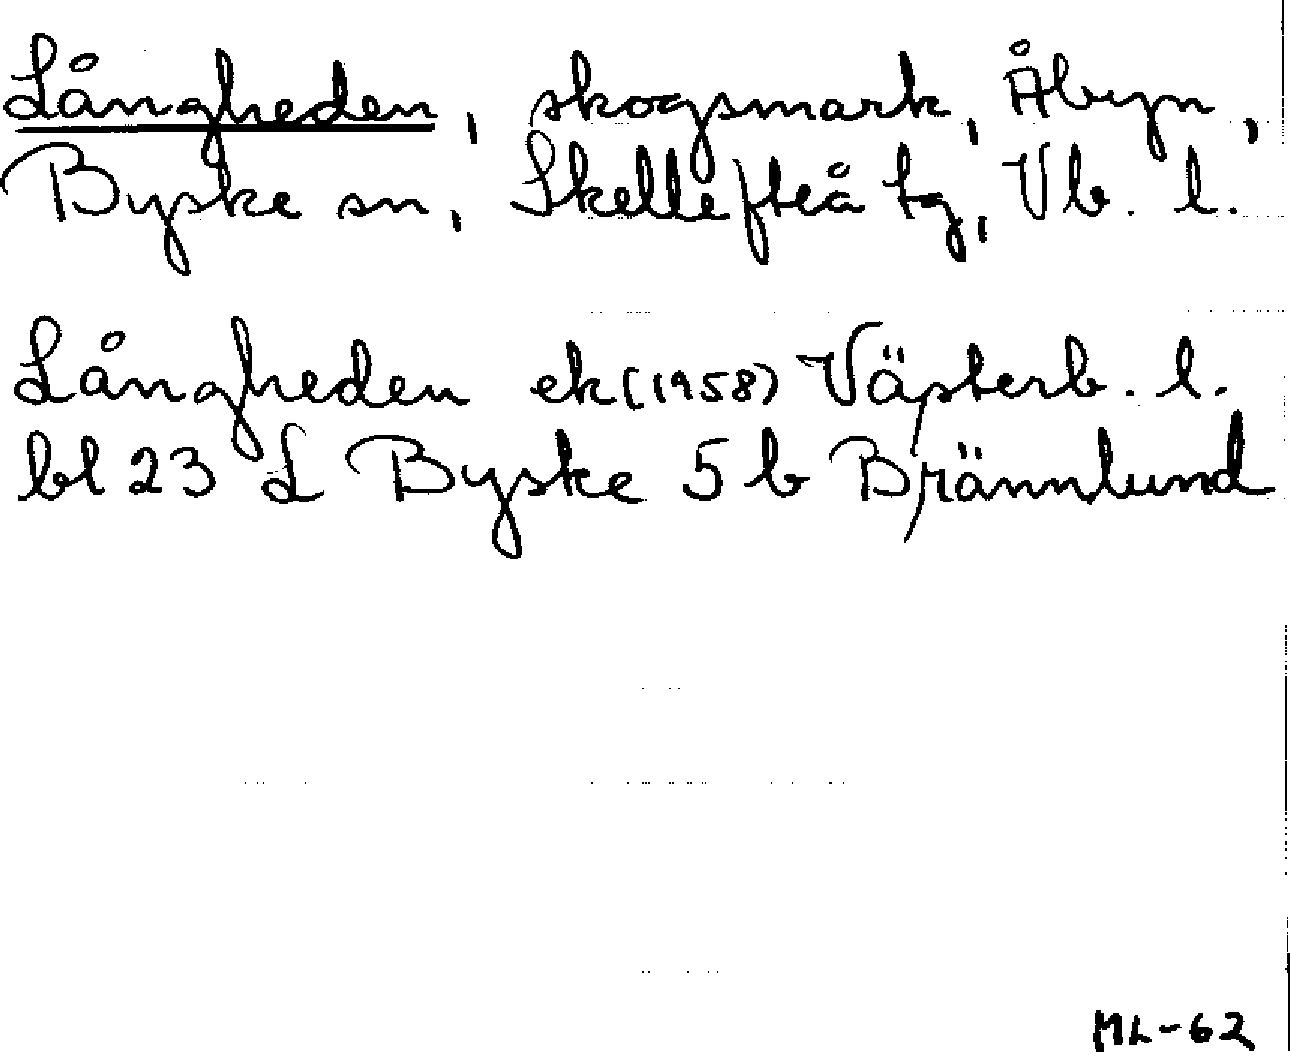 Långheden, skogsmark, Åbyn,
Byske sn, Skellefteå tg, Vb. l.
Långheden ek (1958) Västerb. l.
bl 23 L Byske 5 b Brännlund
ML-62